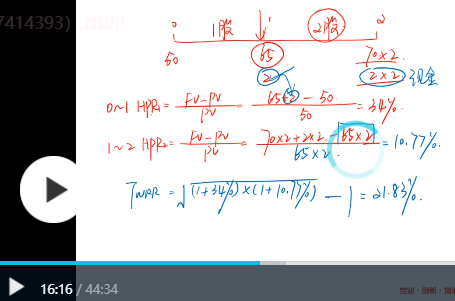 7414393)
0 1股 1 2股 2
50 65 70×2
2 2×2 现金
0~1 HPR₁ = FV-PV / PV = 65+2-50 / 50 = 34%.
1~2 HPR₂ = FV-PV / PV = 70×2+2×2-65×2 / 65×2 = 10.77%.
TWRR = √(1+34%)×(1+10.77%) - 1 = 21.83%.
16:16 / 44:34